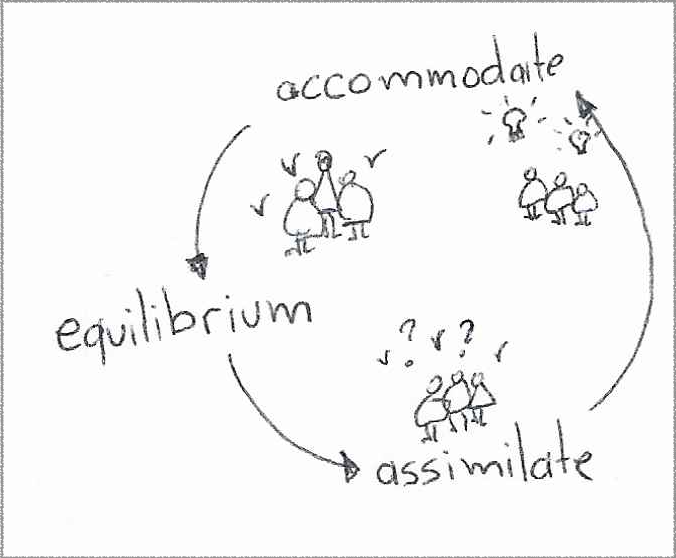 accommodate
equilibrium
? ?
assimilate